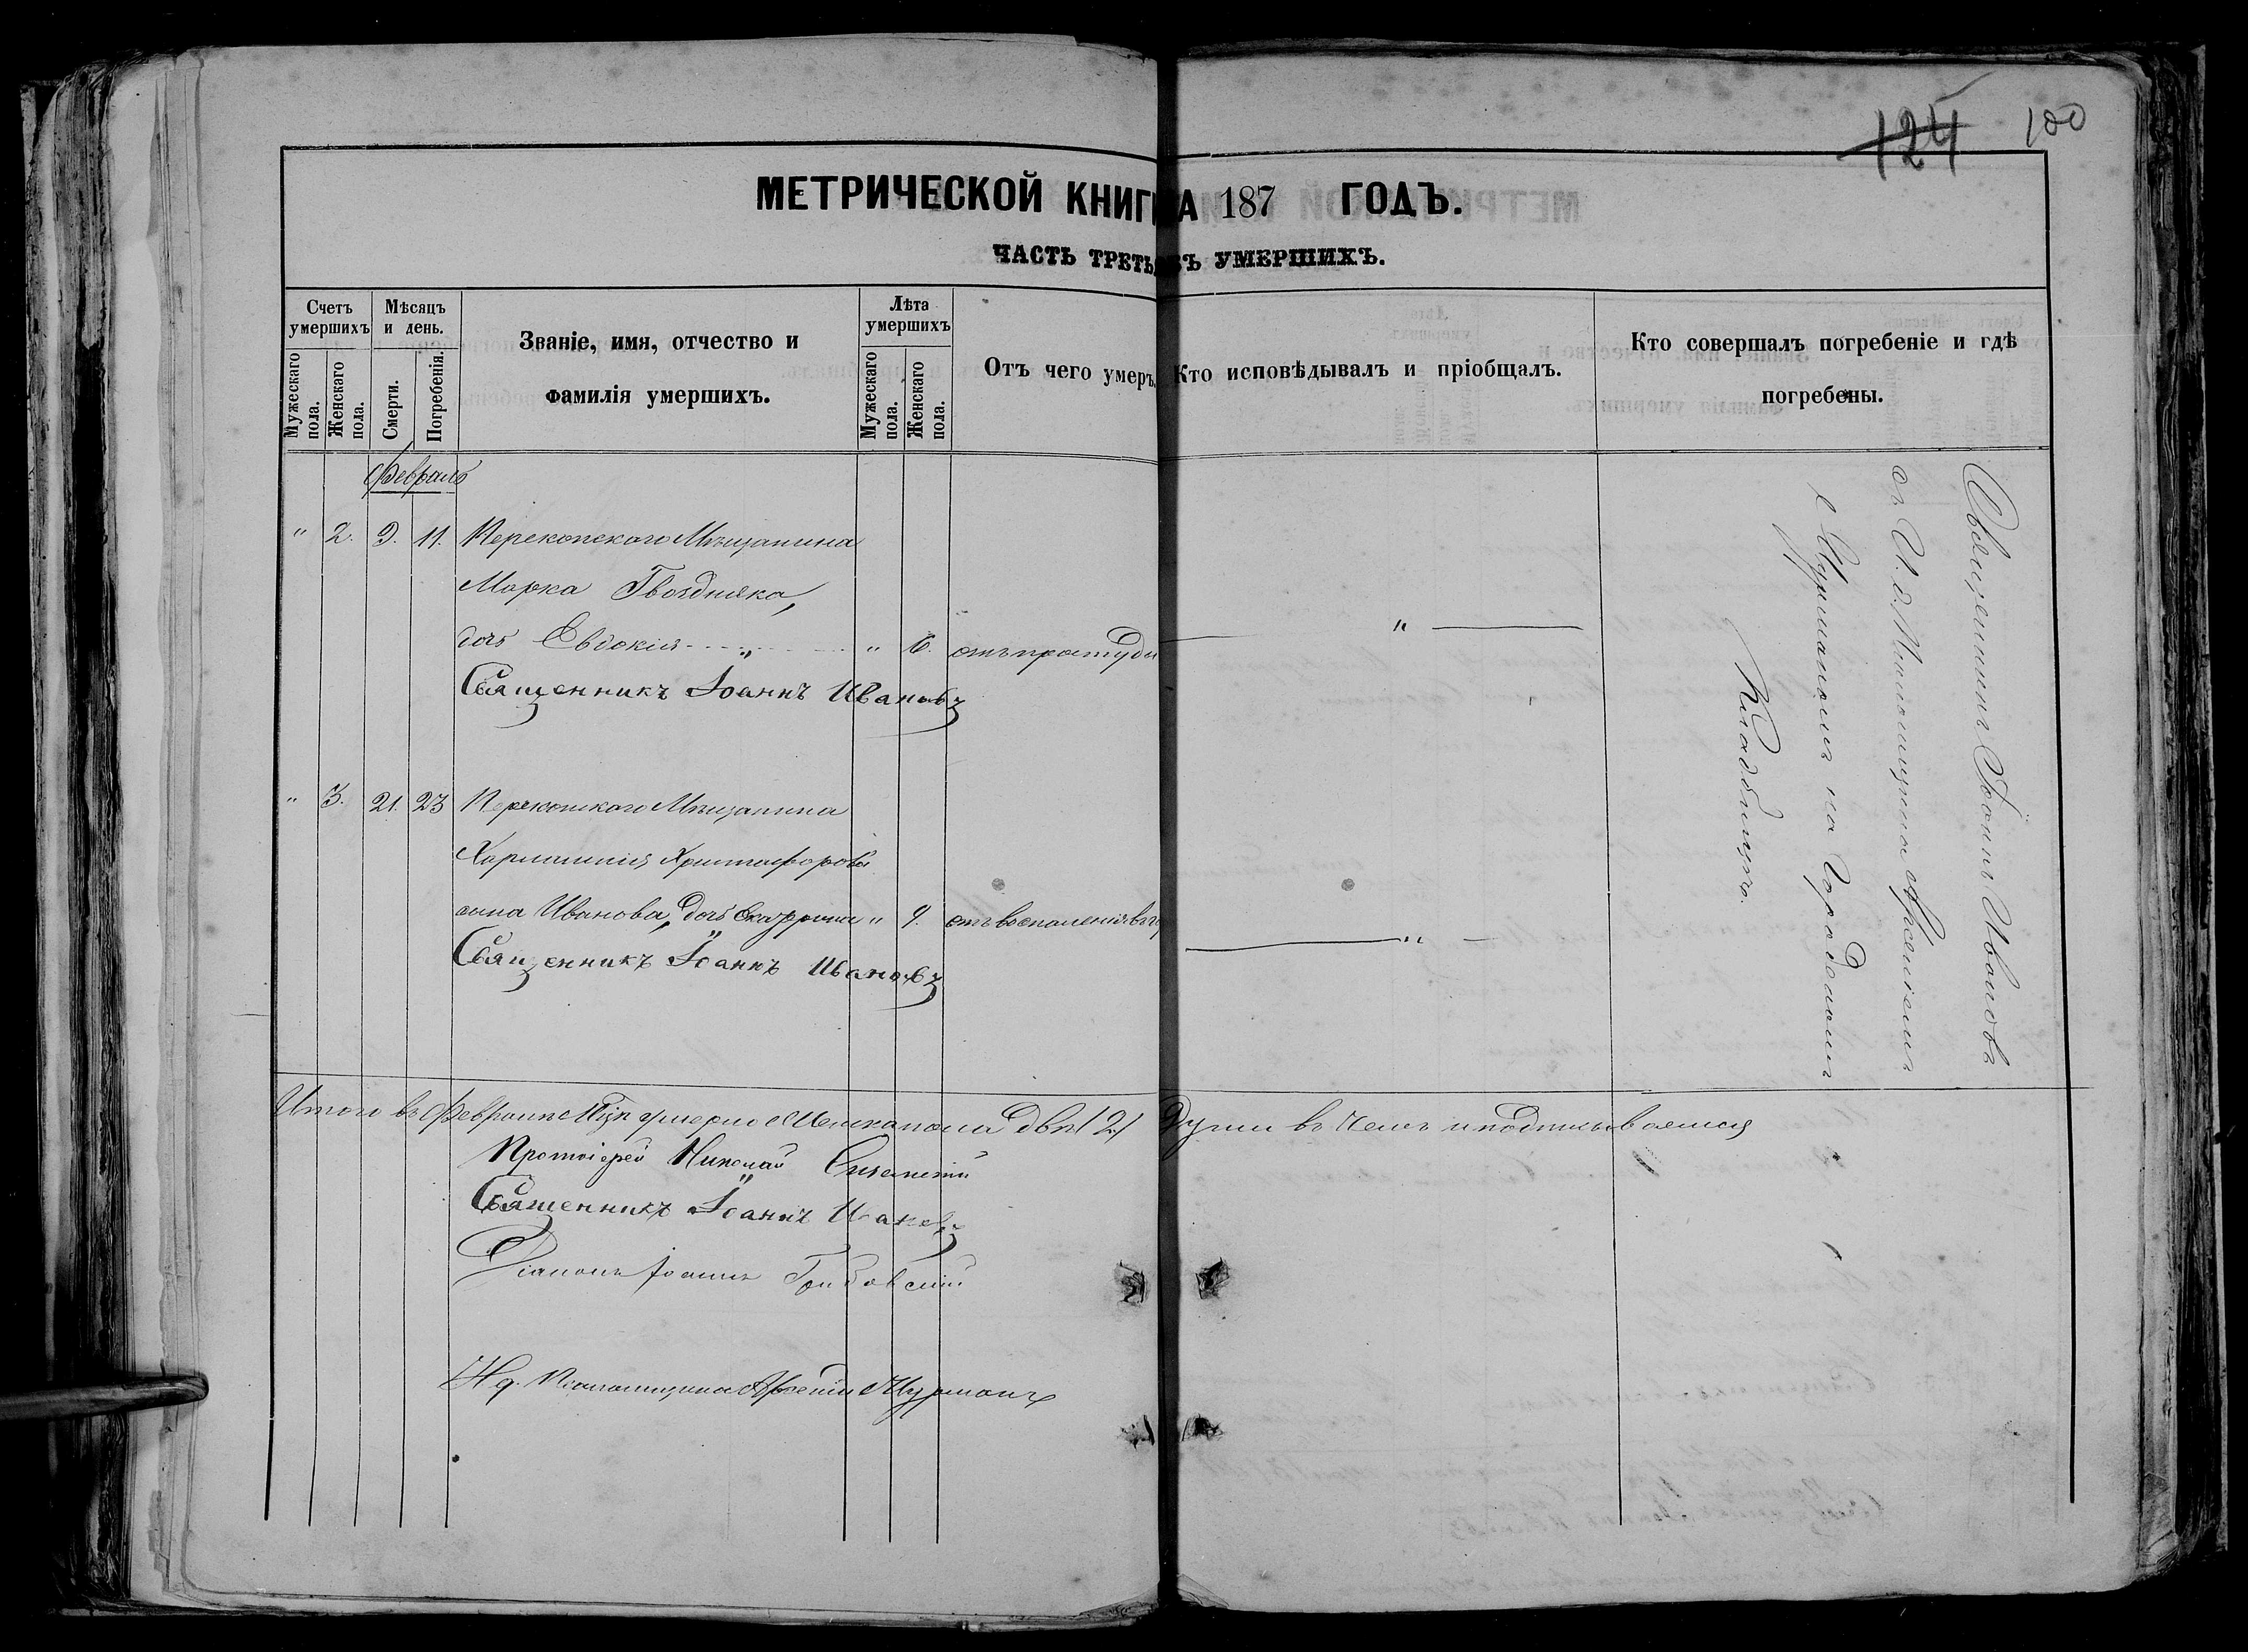 124 100
МЕТРИЧЕСКОЙ КНИГ
НА 187 ГОДЪ.
ЧАСТЬ ТРЕТЬ
ОБЪ УМЕРШИХЪ.
Счетъ умершихъ
Мужескаго пола.
Женскаго пола.
Мѣсяцъ и день.
Смерти.
Погребенія.
Званіе, имя, отчество и
фамилія умершихъ.
Лѣта умершихъ
Мужескаго пола.
Женскаго пола.
Отъ чего умеръ.
Кто исповѣдывалъ и пріобщалъ.
Кто совершалъ погребеніе и гдѣ
погребены.
Февраль
" 2. 9. 11. Перекопскаго Мѣщанина
Марка Гвоздика,
дочь Евдокія " 6. отъ простуды "
Священникъ Іоаннъ Ивановъ
" 3. 21. 23 Перекопскаго Мѣщанина
Христофорова
сына Иванова, дочь Екатерина " 9. отъ воспаленія въ "
Священникъ Іоаннъ Ивановъ
Священникъ Іоаннъ Ивановъ
съ И. д. Псаломщика Арсеніемъ
Мурманомъ на Городскомъ
Кладбищѣ.
Итого въ Февралѣ Мцѣ умерло Женска пола двѣ (2) души въ чемъ и подписываемся
Протоіерей Николай
Священникъ Іоаннъ Ивановъ
Діаконъ Іоаннъ Грибовскій
И д. Псаломщика Арсеній Мурманъ